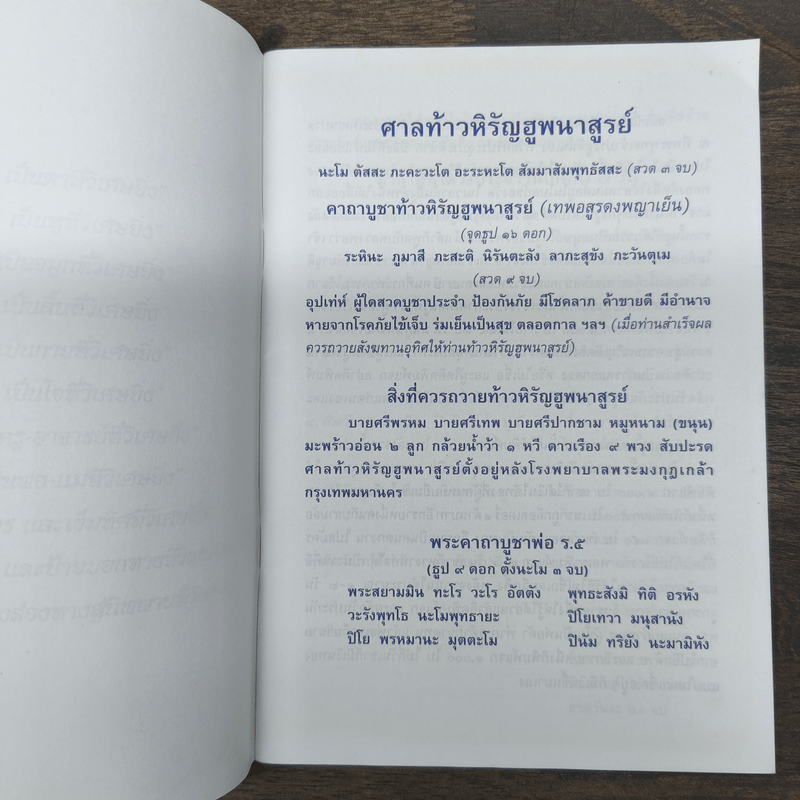 ศาลท้าวหิรัญฮูพนาสูรย์
นะโม ตัสสะ ภะคะวะโต อะระหะโต สัมมาสัมพุทธัสสะ (สวด ๓ จบ)
คาถาบูชาท้าวหิรัญฮูพนาสูรย์ (เทพอสูรดงพญาเย็น)
(จุดธูป ๑๖ ดอก)
ระหินะ ภูมาสี ภะสะติ นิรันตะลัง ลาภะสุขัง ภะวันตุเม
(สวด ๙ จบ)
อุปเท่ห์ ผู้ใดสวดบูชาประจำ ป้องกันภัย มีโชคลาภ ค้าขายดี มีอำนาจ
หายจากโรคภัยไข้เจ็บ ร่มเย็นเป็นสุข ตลอดกาล ฯลฯ (เมื่อท่านสำเร็จผล
ควรถวายสังฆทานอุทิศให้ท่านท้าวหิรัญฮูพนาสูรย์)
สิ่งที่ควรถวายท้าวหิรัญฮูพนาสูรย์
บายศรีพรหม บายศรีเทพ บายศรีปากชาม หมูหนาม (ขนุน)
มะพร้าวอ่อน ๒ ลูก กล้วยน้ำว้า ๑ หวี ดาวเรือง ๙ พวง สับปะรด
ศาลท้าวหิรัญฮูพนาสูรย์ตั้งอยู่หลังโรงพยาบาลพระมงกุฎเกล้า
กรุงเทพมหานคร
พระคาถาบูชาพ่อ ร.๕
(ธูป ๙ ดอก ตั้งนะโม ๓ จบ)
พระสยามมิน ทะโร วะโร อัตตัง พุทธะสังมิ ทิติ อรหัง
วะรังพุทโธ นะโมพุทธายะ ปิโยเทวา มนุสานัง
ปิโย พรหมานะ มุตตะโม ปินัม ทริยัง นะมามิหัง